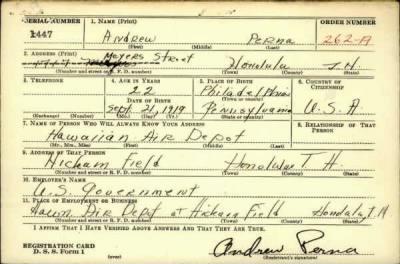 SERIAL NUMBER 1. NAME (Print) ORDER NUMBER
1447 Andrew Perna 262-A
(First) (Middle) (Last)
2. ADDRESS (Print)
Meyers Street Honolulu T.H.
(Number and street or R. F. D. number) (Town) (County) (State)
3. TELEPHONE 4. AGE IN YEARS 5. PLACE OF BIRTH 6. COUNTRY OF CITIZENSHIP
22 Philadelphia
DATE OF BIRTH
Sept 21, 1919 Pennsylvania U.S.A
(Exchange) (Number) (Mo.) (Day) (Yr.) (State or country)
7. NAME OF PERSON WHO WILL ALWAYS KNOW YOUR ADDRESS 8. RELATIONSHIP OF THAT PERSON
Hawaiian Air Depot
(Mr., Mrs., Miss) (First) (Middle) (Last)
9. ADDRESS OF THAT PERSON
Hickam Field Honolulu T. H.
(Number and street or R. F. D. number) (Town) (County) (State)
10. EMPLOYER'S NAME
U.S. Government
11. PLACE OF EMPLOYMENT OR BUSINESS
Hawn. Air Depot at Hickam Field Honolulu T.H
(Number and street or R. F. D. number) (Town) (County) (State)
I AFFIRM THAT I HAVE VERIFIED ABOVE ANSWERS AND THAT THEY ARE TRUE.
REGISTRATION CARD
D. S. S. Form 1 Andrew Perna
(Registrant's signature)